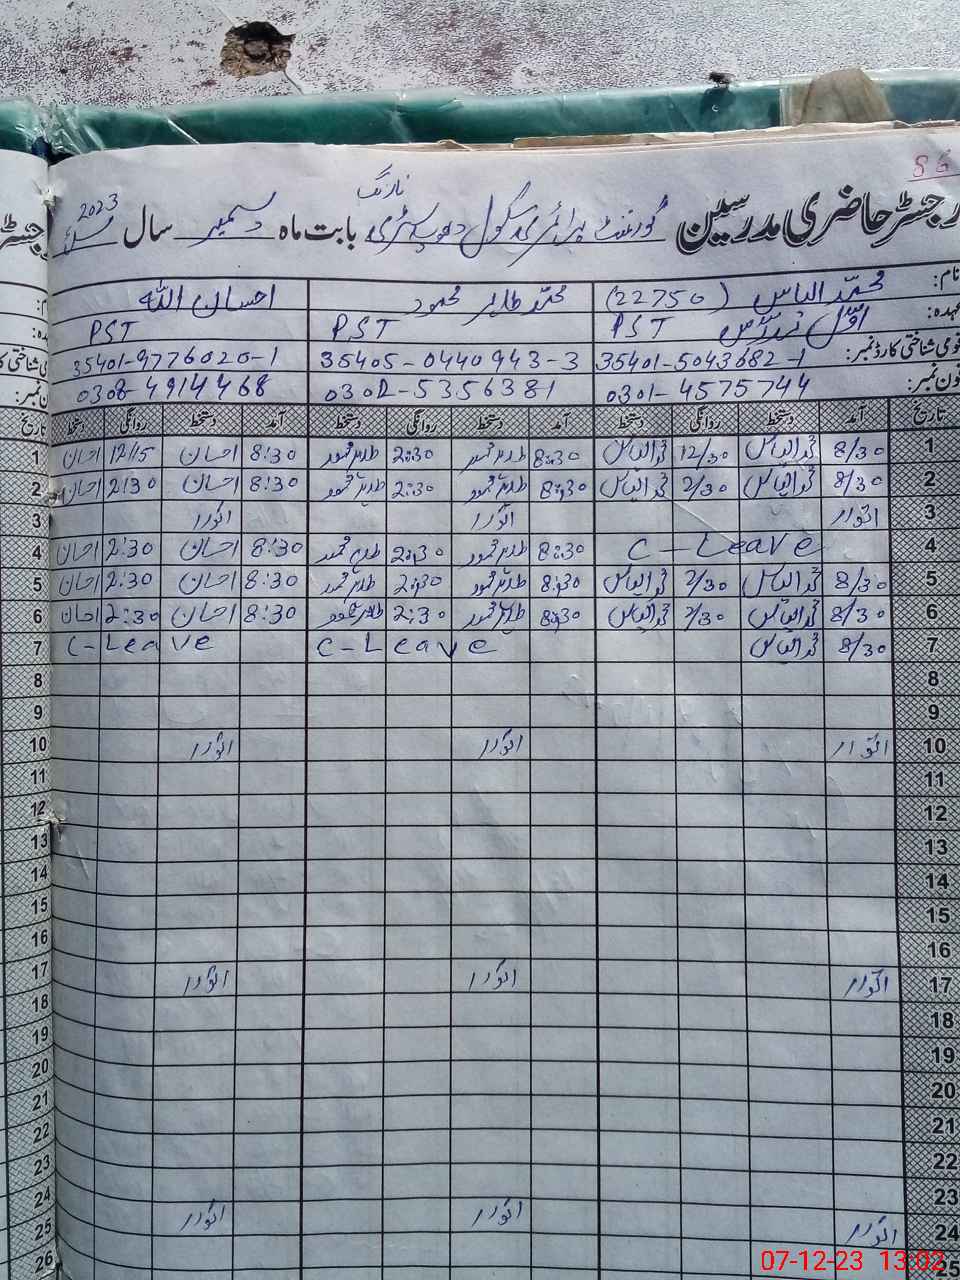 86
رجسٹر حاضری مدرسین گورنمنٹ پرائمری سکول نارنگ بابت ماہ دسمبر سال 2023
نام: محمد الیاس (22750) محمد طاہر محمود احسان اللہ
عہدہ: اول مدرس PST PST PST
قومی شناختی کارڈ نمبر: 35401-5043682-1 35405-0440943-3 35401-9776020-1
فون نمبر: 0301-4575744 0302-5356381 0308-4914468
تاریخ آمد دستخط روانگی دستخط آمد دستخط روانگی دستخط آمد دستخط روانگی دستخط
1 8/30 محمد الیاس 12/30 محمد الیاس 8:30 طاہر محمود 2:30 طاہر محمود 8:30 احسان 12/15 احسان
2 8/30 محمد الیاس 2/30 محمد الیاس 8:30 طاہر محمود 2:30 طاہر محمود 8:30 احسان 2:30 احسان
3 اتوار اتوار اتوار
4 C-Leave 8:30 طاہر محمود 2:30 طاہر محمود 8:30 احسان 2:30 احسان
5 8/30 محمد الیاس 2/30 محمد الیاس 8:30 طاہر محمود 2:30 طاہر محمود 8:30 احسان 2:30 احسان
6 8/30 محمد الیاس 2/30 محمد الیاس 8:30 طاہر محمود 2:30 طاہر محمود 8:30 احسان 2:30 احسان
7 8/30 محمد الیاس C-Leave C-Leave
8
9
10 اتوار اتوار اتوار
11
12
13
14
15
16
17 اتوار اتوار اتوار
18
19
20
21
22
23
24 اتوار اتوار اتوار
25
07-12-23 13:02